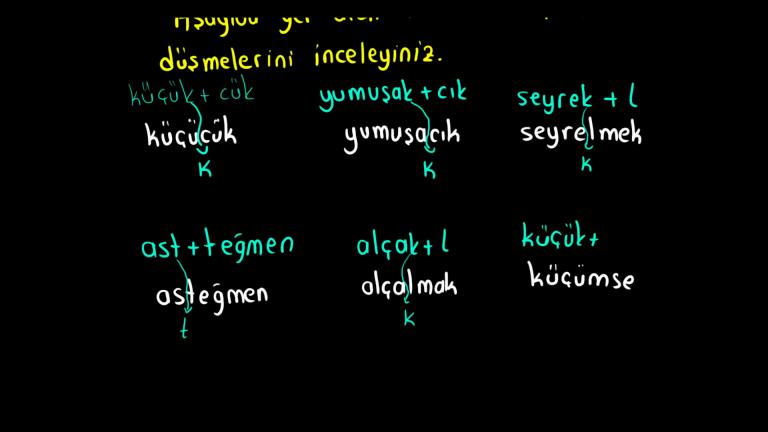 düşmelerini inceleyiniz.
küçük + cük yumuşak + cık seyrek + l
küçücük yumuşacık seyrelmek
k k k
ast + teğmen alçak + l küçük +
asteğmen alçalmak küçümse
t k